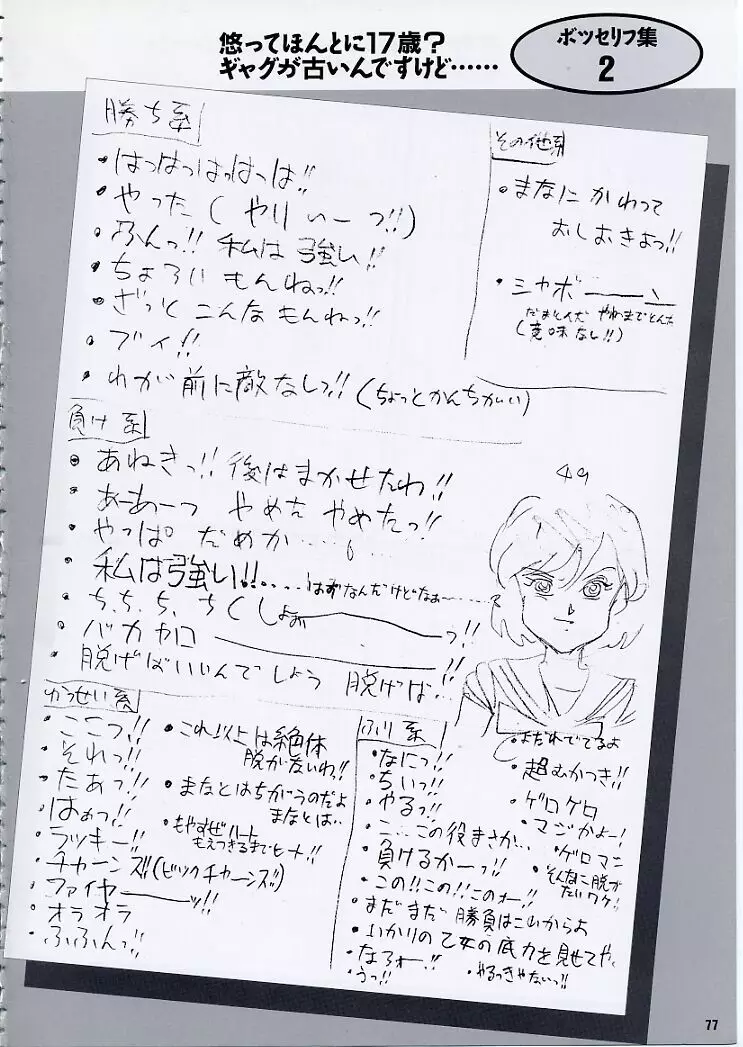 悠ってほんとに17歳?
ギャグが古いんですけど……
ボツセリフ集
2
勝ち系
・はっはっはっはっは!!
・やった(やりぃーっ!!)
・ふんっ!! 私は強い!!
・ちょろいもんねっ!!
・ざっとこんなもんねっ!!
・ブイ!!
・わが前に敵なしっ!!(ちょっとかんちがい)
その他系
・まなにかわって
おしおきよっ!!
・シャボーーン
だまとんだ やねまでとんだ
(意味なし!!)
負け系
・あねきっ!! 後はまかせたわ!!
・あーあーっ やめた やめたっ!!
・やっぱ だめか……
・私は強い!!‥‥はずなんだけどなぁ……
・ち、ち、ち、ちくしょおぉーーーっ!!
・バカヤロ―――――!!
・脱げばいいんでしょう 脱げば‥!!
49
かっせい系
・ここっ!!
・それっ!!
・たぁっ!!
・はぁっ!!
・ラッキー!!
・チャーンズ!!(ビックチャーンズ!!)
・ファイヤーーーッ!!
・オラオラ
・ふふんっ!!
・これ以上は絶体
脱がないわ!!
・まなとはちがうのだよ
まなとは‥
・もやすぜハート
もえつきるまでヒート!!
ふり系
・なにっ!!
・ちいっ!!
・やるっ!!
・こ…この役まさか…
・負けるかーっ!!
・この!!この!!このォー!!
・まだまだ勝負はこれからよ
・いかりの乙女の底力を見せてやく
・なろォー!!
・うっ!!
・やるっきゃないっ!!
・まだれでてるよ
・超むかつき!!
・ゲロゲロ
・マジかよー!
・ゲロマニ
・そんなに脱が
たいワケ!
77